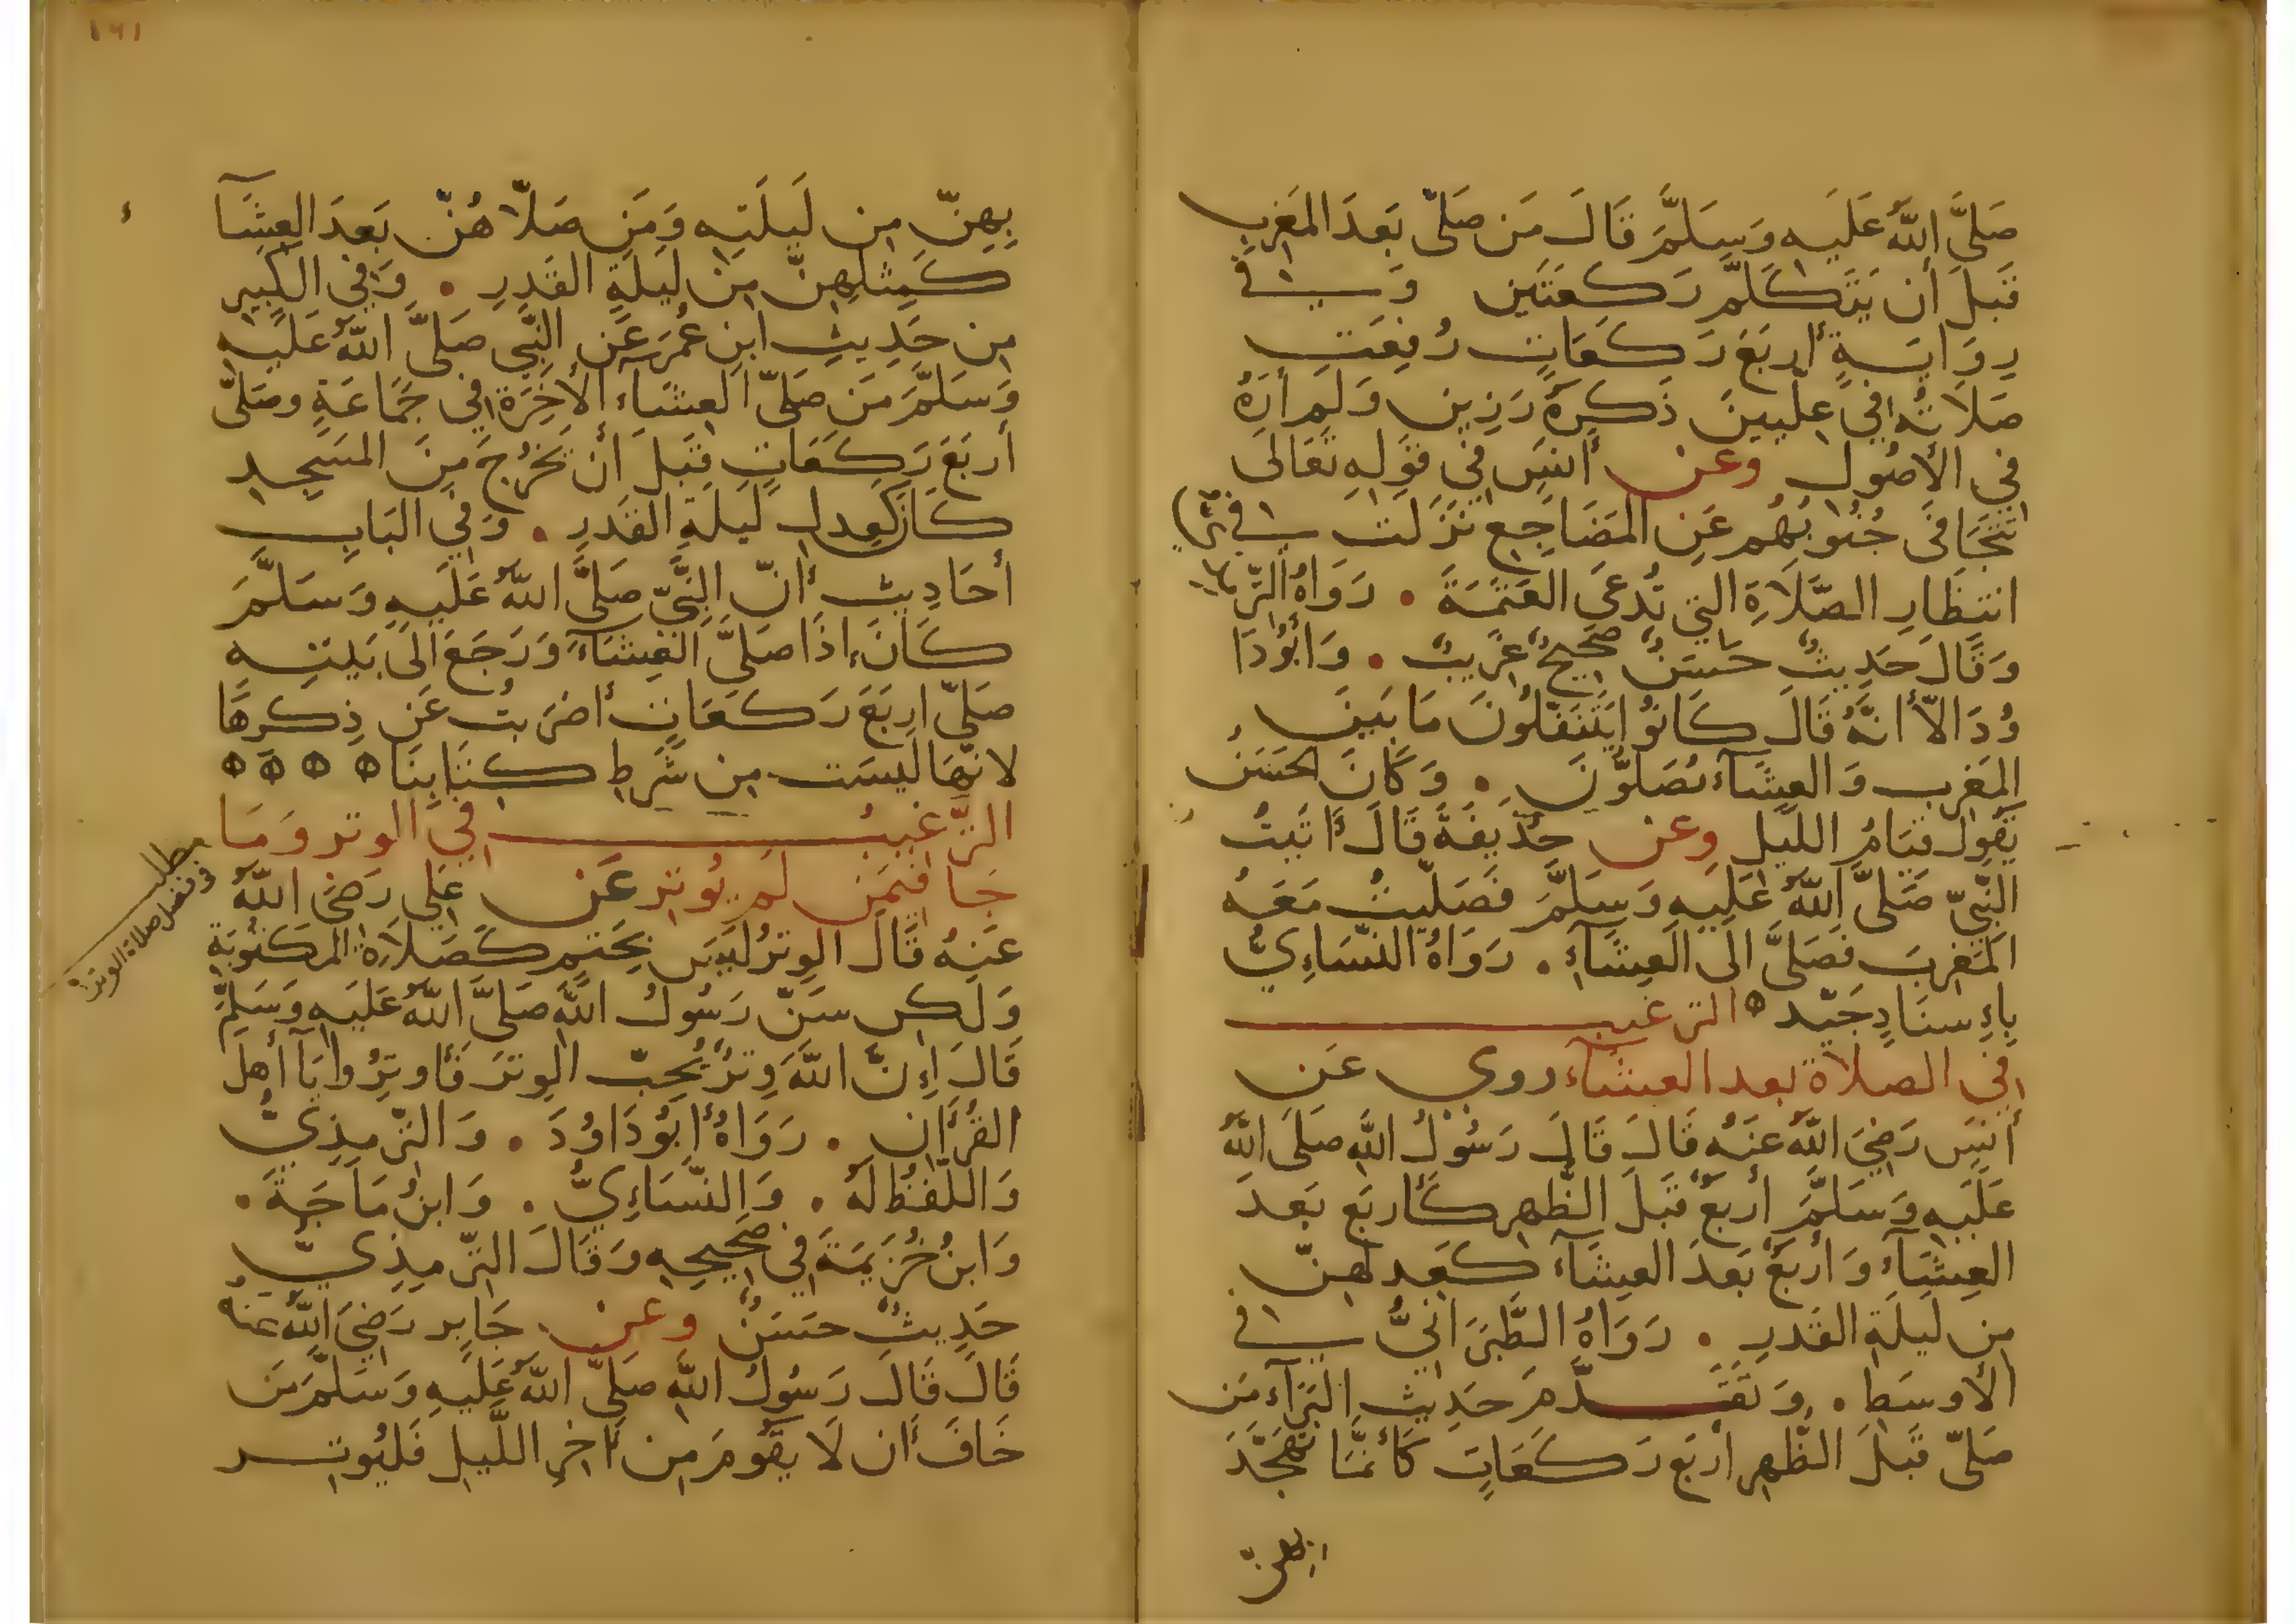 صَلَّى اللَّهُ عَلَيهِ وَسَلَّمَ قَالَ مَن صَلّى بَعدَ المَغرِبِ
قَبلَ أن يَتَكَلَّمَ رَكعَتَين وَفي
رِوَايَةٍ أربَعَ رَكعَاتٍ رُفِعَت
صَلَاتُهُ في عِلّيينَ ذَكرَهُ رَزين وَلَم أرَهُ
في الأصُول وعن أنَسٍ في قَولِهِ تَعَالَى
تَتَجَافَى جُنُوبُهُم عَنِ المَضَاجِعِ نَزَلَت في
انتِظَارِ الصَّلَاةِ التي تُدعَى العَتَمَةَ . رَوَاهُ
وَقَالَ حَدِيثٌ حَسَنٌ صَحِيحٌ غَرِيبٌ . وَابُودَا
وُدَ الاّ أنَّهُ قَالَ كَانُوا يَتَنَفّلُونَ مَا بَينَ
المَغرِب وَالعِشَآء يُصَلّونَ . وَكَانَ الحَسَنُ
يَقُولُ قيَامُ اللّيلِ وعن حُذَيفَةَ قَالَ أتَيتُ
النَّبِيّ صَلَّى اللَّهُ عَلَيهِ وَسَلَّمَ فَصَلّيتُ مَعَهُ
المَغرِبَ فَصَلَّى الَى العِشَآءِ . رَوَاهُ النّسَاءِيُّ
بِاءِسنَادٍ جَيّد الترغيب
في الصلاة بعد العشآء روي عَن
أنَسٍ رَضِيَ اللَّهُ عَنهُ قَالَ قَالَ رَسُولُ اللَّهِ صَلَى اللَّهُ
عَلَيهِ وَسَلَّمَ أربَعٌ قَبلَ الظّهرِ كَأربَعٍ بَعدَ
العِشَآءِ وَأربَعٌ بَعدَ العِشَآء كَعَدلهِنّ
مِن لَيلَةِ القَدرِ . رَوَاهُ الطَّبَرَانيُّ في
الأوسَطِ . وَتَقَدّمَ حَدِيث البَرَآءِ مَن
صَلّى قَبلَ الظّهرِ أربَع رَكعَاتٍ كَأنّمَا تَهَجَّدَ
بهنّ
١٦١
بِهِنّ مِن لَيلَتِهِ وَمَن صَلّاهُنّ بَعدَ العِشَآ
ء
كَمِثلهِنّ مِن لَيلَةِ القَدرِ . وَفي الكَبِيرِ
مِن حَدِيثِ ابنِ عُمَرَ عَنِ النَّبِي صَلَّى اللَّهُ عَلَيهِ
وَسَلّمَ مَن صَلّى العِشَآء الأخِرَة في جَمَاعَةٍ وصَلّى
أربَعَ رَكَعَاتٍ قَبلَ أن يَخرُجَ مِنَ المَسجِدِ
كَانَ كَعِدلِ لَيلَةِ القَدرِ . وَفي البَابِ
أحَادِيث أنّ النَّبِيّ صَلَّى اللَّهُ عَلَيهِ وَسَلَّمَ
كَانَ اذَا صَلَّى العِشَآءَ وَرَجَعَ الَى بَيتِهِ
صَلّى اربَعَ رَكَعَاتٍ أضرَبتُ عَن ذِكرِهَا
لانّهَا لَيسَت مِن شَرطِ كتَابِنَا
التّرغيبُ في الوتر وَمَا
جَا فيمَن لَم يُوتِر عَن عَلي رَضيَ اللَّهُ
مطلب
في فضل صلاة الوتر
عَنهُ قَالَ الوِترُ لَيسَ بِحَتمٍ كَصَلَاةِ المَكتُوبَةِ
وَلَكِن سَنّ رَسُولُ اللَّهِ صَلَّى اللَّهُ عَلَيهِ وَسَلَّمَ
قَالَ اِنَّ اللَّهَ وِترٌ يُحِبّ الوِترَ فَأوتِرُوا يَآ أهلَ
القُرآنِ . رَوَاهُ أبُودَاوُدَ . وَالتّرمِذِيُّ
وَاللّفظُ لَهُ . وَالنّسَاءِيُّ . وَابنُ مَاجَةَ .
وَابنُ خُزَيمَةَ في صَحِيحِهِ وَقَالَ التّرمِذِيّ
حَدِيثٌ حَسَنٌ وعن جَابِر رَضِيَ اللَّهُ عَنهُ
قَالَ قَالَ رَسُولُ اللَّهِ صَلَّى اللَّهُ عَلَيهِ وَسَلَّمَ مَن
خَافَ أن لَا يَقُومَ مِن آخِرِ اللَّيلِ فَليُوتِر